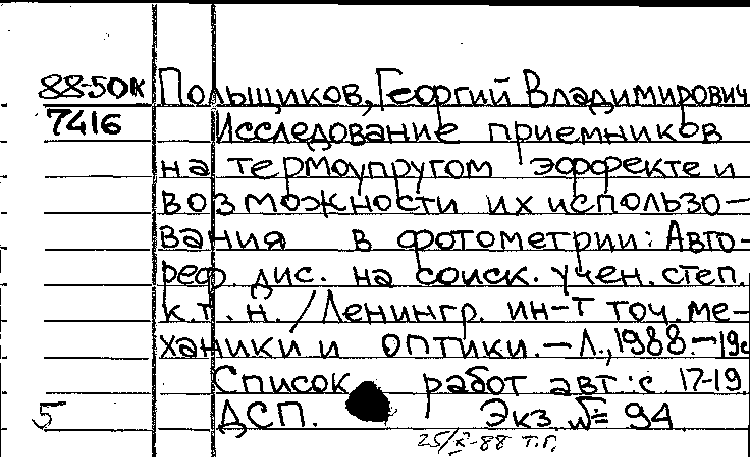 88-50к Польщиков, Георгий Владимирович
7416 Исследование приемников
на термоупругом эффекте и
возможности их использо-
вания в фотометрии: Авто-
реф. дис. на соиск. учен. степ.
к.т.н. / Ленингр. ин-т точ. ме-
ханики и оптики. — Л., 1988. — 19с
Список работ авт.: с. 17-19
5 ДСП. Экз. № 94
25/X-88 т.г.